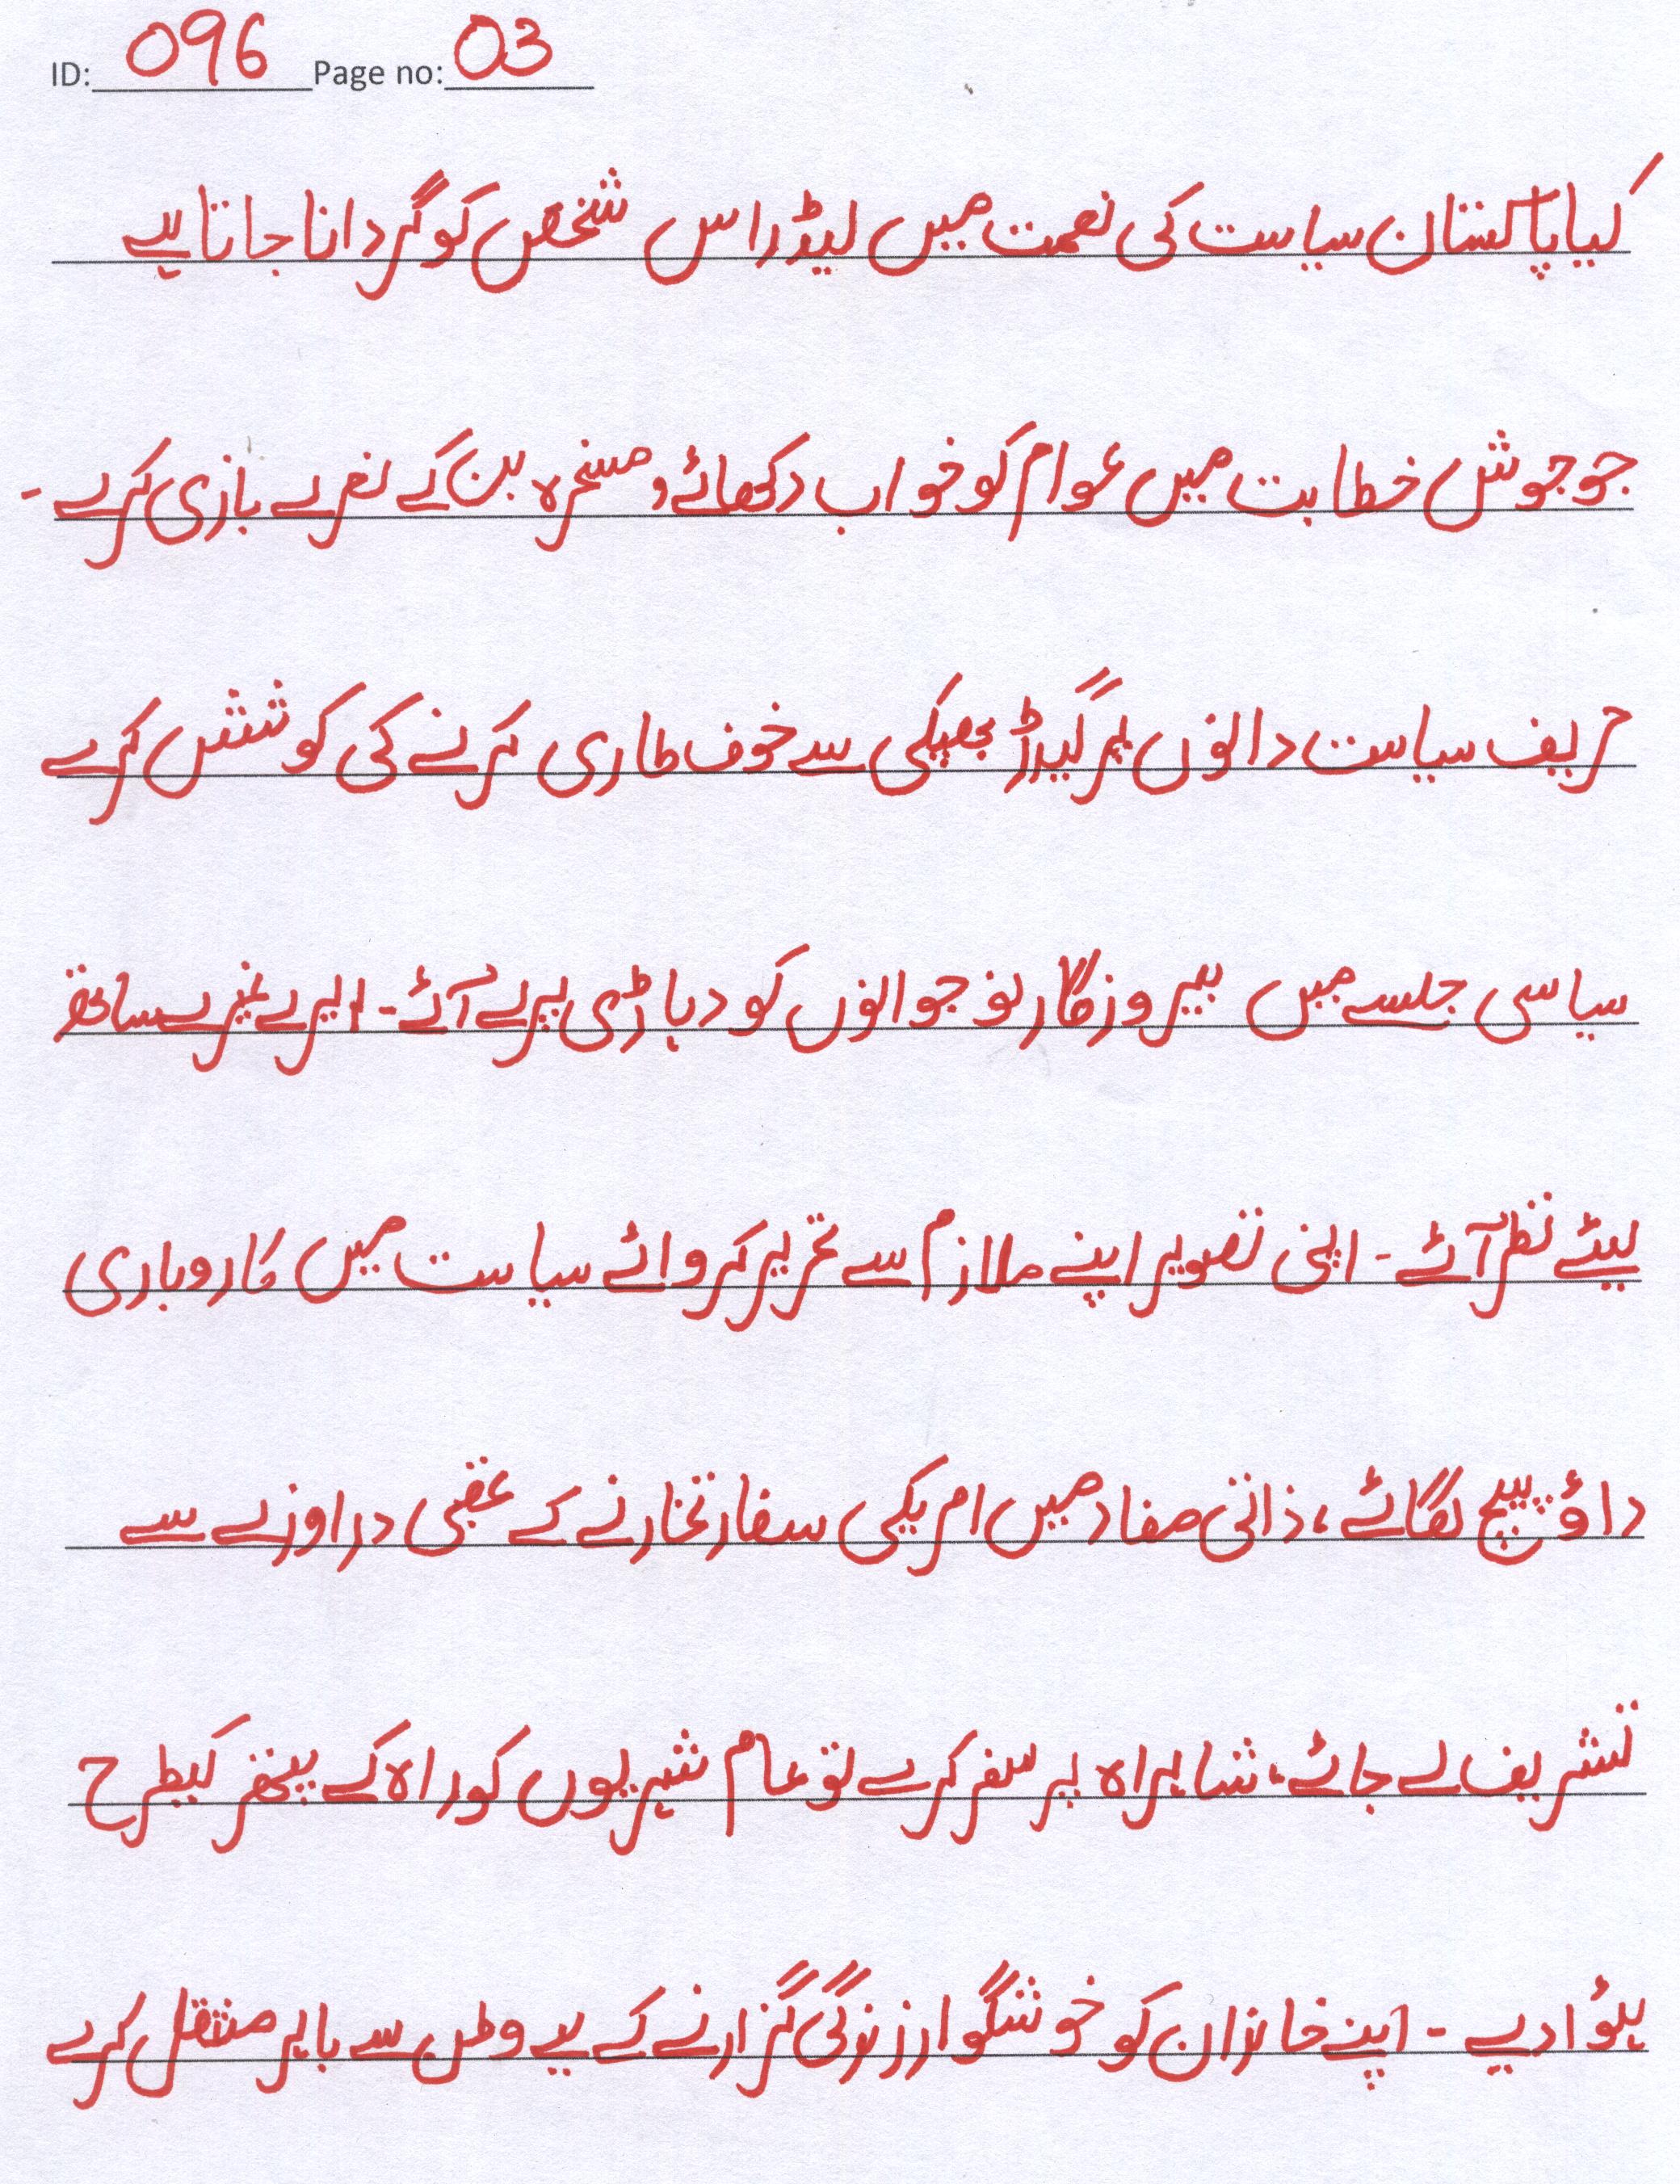 ID: 096 Page no: 03
کیا پاکستان سیاست کی نعمت میں لیڈر اس شخص کو گردانا جاتا ہے
جو جوش خطابت میں عوام کو خواب دکھائے، مسخرہ بن کے نعرے بازی کرے۔
حریف سیاست دانوں پر گیدڑ بھبکی سے خوف طاری کرنے کی کوشش کرے
سیاسی جلسے میں بیروزگار نوجوانوں کو دہاڑی پر لے آئے۔ ایرے غیرے ساتھ
لیئے نظر آئے۔ اپنی تصویر اپنے ملازم سے تحریر کروائے سیاست میں کاروباری
داؤ پیچ لگائے، ذاتی مفاد میں امریکی سفارتخارنے کے عقبی دراوزے سے
تشریف لے جائے، شاہراہ پر سفر کرے تو عام شہریوں کو راہ کے پتھر کیطرح
ہٹوا دیے۔ اپنے خاندان کو خوشگوار زندگی گزارنے کے لیے وطن سے باہر منتقل کرے